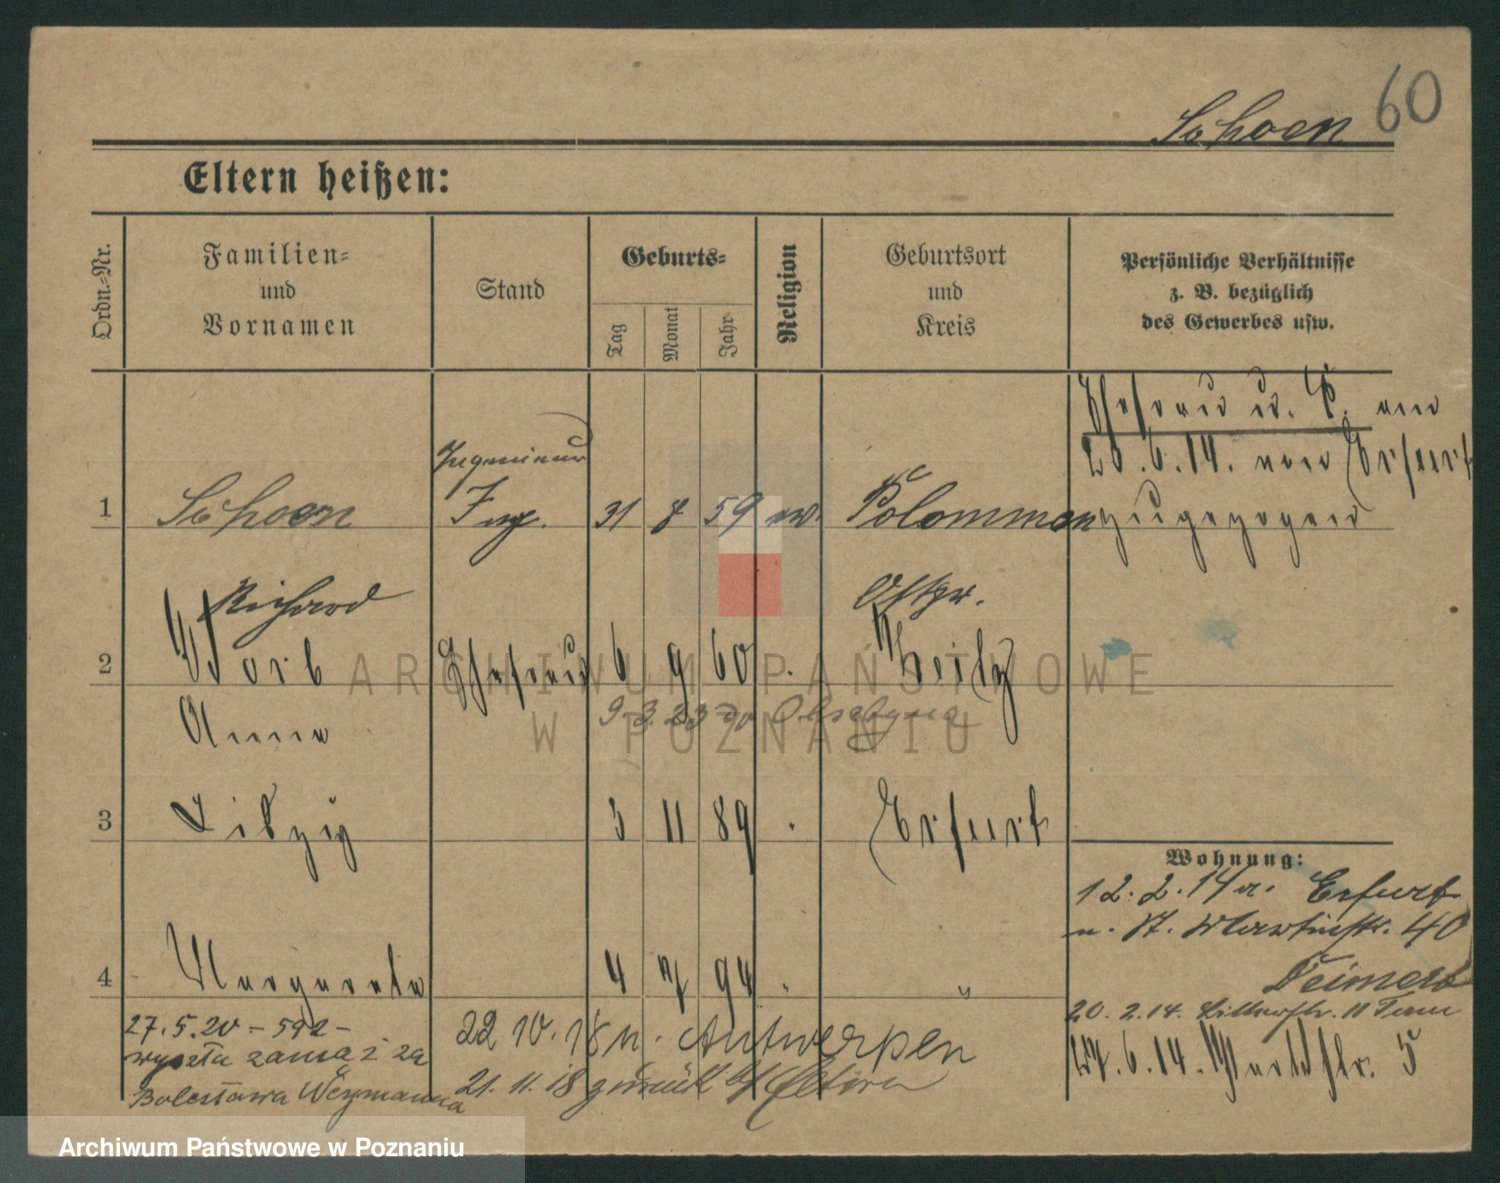 Schoen 60
Eltern heißen:
Ordn.-Nr.
Familien- und Vornamen
Stand
Geburts-
Tag
Monat
Jahr
Religion
Geburtsort und Kreis
Persönliche Verhältnisse
z. B. bezüglich
des Gewerbes usw.
Ehefrau u. T. am
20.6.14. von Erfurt
zugezogen
Ingenieur
1 Schoen Ing. 31 8 59 ev. Polommen
Richard Ostpr.
2 Worb Ehefrau 6 9 60 Zeitz
Anna 9.3.23 do
3 5 11 89 Erfurt
Wohnung:
12.2.14 a. Erfurt
n. St. Martinstr. 40
4 Margarete 4 7 94 "
20.2.14. 11
27.5.20 – 592 –
wyszła zamąż za
Bolesława Weymanna
22 10.18 n. Antwerpen
21.11.18 zurück b/Eltern
6.14. 5
ARCHIWUM PAŃSTWOWE
W POZNANIU
Archiwum Państwowe w Poznaniu